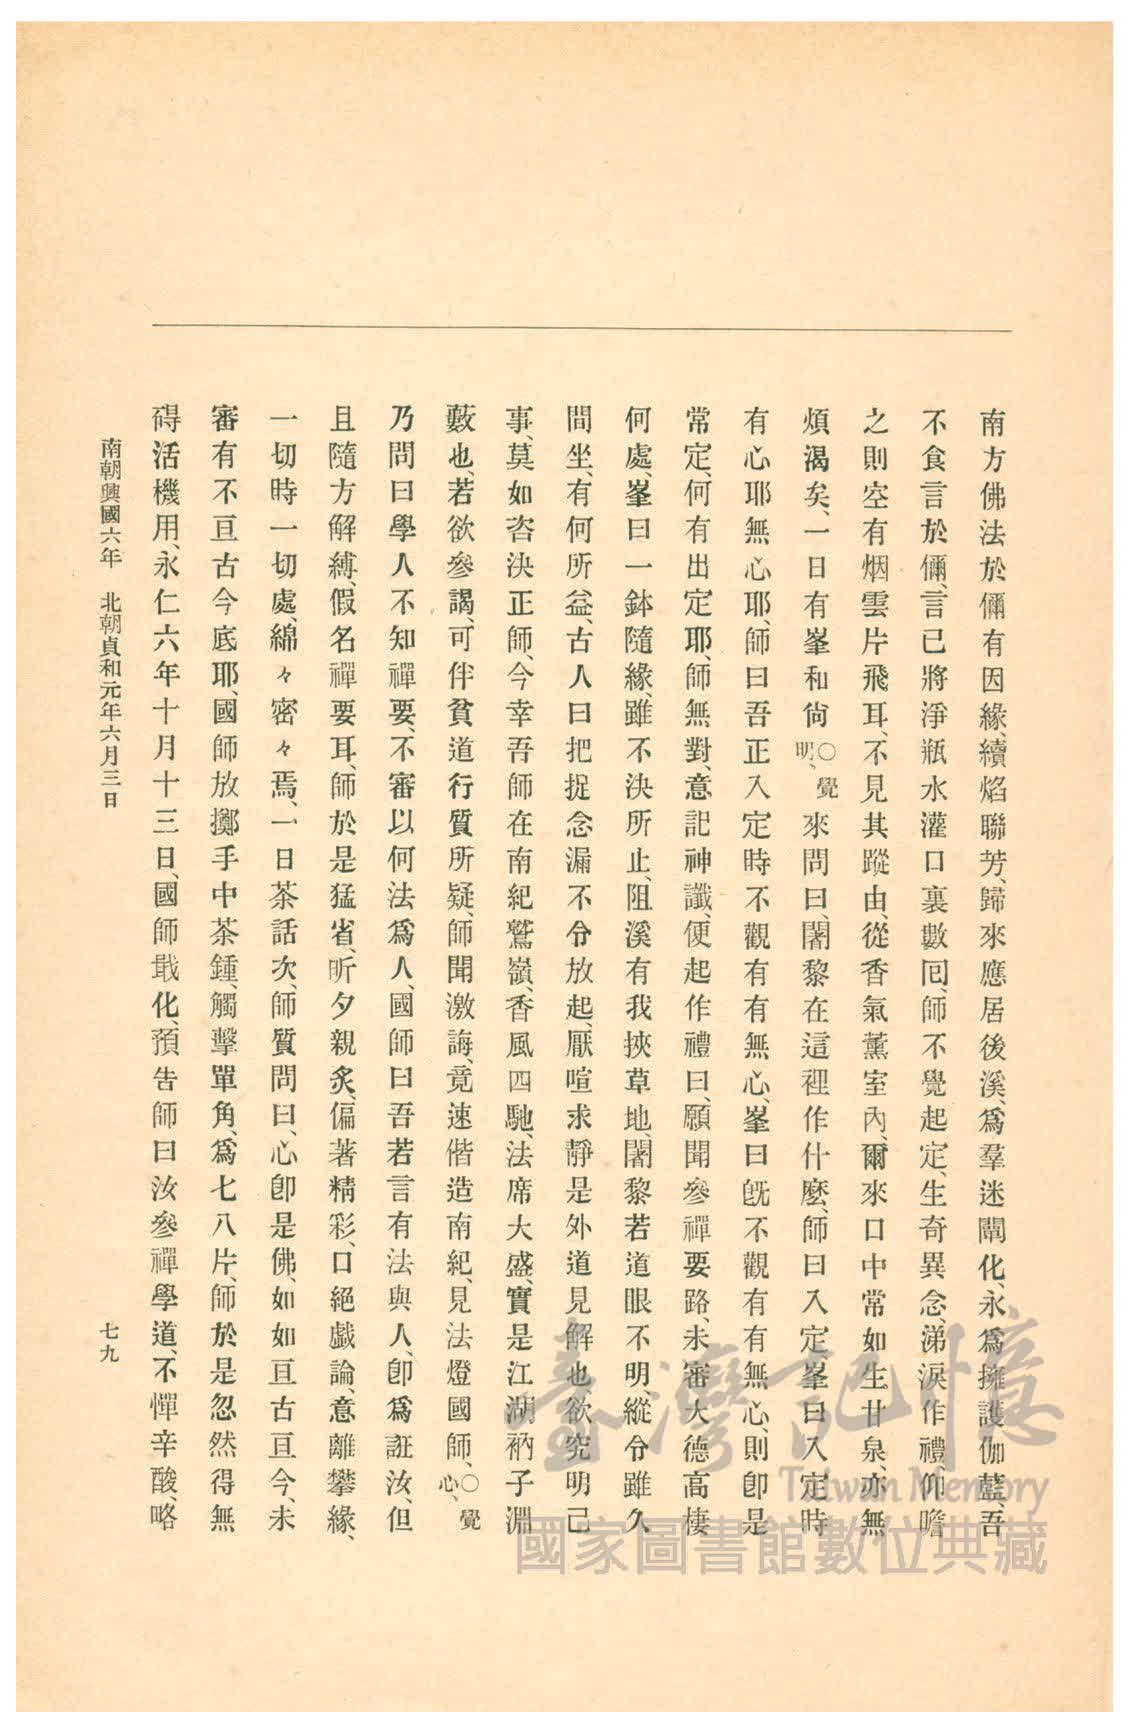 南方佛法於儞有因緣、續焰聯芳、歸來應居後溪、爲羣迷闡化、永爲擁護伽藍、吾
不食言於儞、言已將淨瓶水灌口裏數囘、師不覺起定、生奇異念、涕淚作禮、仰瞻
之則空有烟雲片飛耳、不見其蹤由、從香氣薰室內、爾來口中常如生甘泉、亦無
煩渴矣、一日有峯和尙〇覺明、來問曰、闍黎在這裡作什麼、師曰入定、峯曰入定時
有心耶無心耶、師曰吾正入定時不觀有有無心、峯曰旣不觀有有無心、則卽是
常定、何有出定耶、師無對、意記神讖、便起作禮曰、願聞參禪要路、未審大德高棲
何處、峯曰一鉢隨緣、雖不決所止、阻溪有我挾草地、闍黎若道眼不明、縱令雖久
間坐、有何所益、古人曰把捉念漏不令放起、厭喧求靜是外道見解也、欲究明己
事、莫如咨決正師、今幸吾師在南紀鷲嶺、香風四馳、法席大盛、實是江湖衲子淵
藪也、若欲參謁、可伴貧道行質所疑、師聞激誨、竟速偕造南紀、見法燈國師、〇覺心、
乃問曰學人不知禪要、不審以何法爲人、國師曰吾若言有法與人、卽爲誑汝、但
且隨方解縛、假名禪要耳、師於是猛省、昕夕親炙、偏著精彩、口絕戲論、意離攀緣、
一切時一切處、綿々密々焉、一日茶話次、師質問曰、心卽是佛、如如亘古亘今、未
審有不亘古今底耶、國師放擲手中茶鍾、觸擊單角、爲七八片、師於是忽然得無
碍活機用、永仁六年十月十三日、國師戢化、預吿師曰汝參禪學道、不憚辛酸、略
南朝興國六年　北朝貞和元年六月三日
七九
臺灣記憶
Taiwan Memory
國家圖書館數位典藏